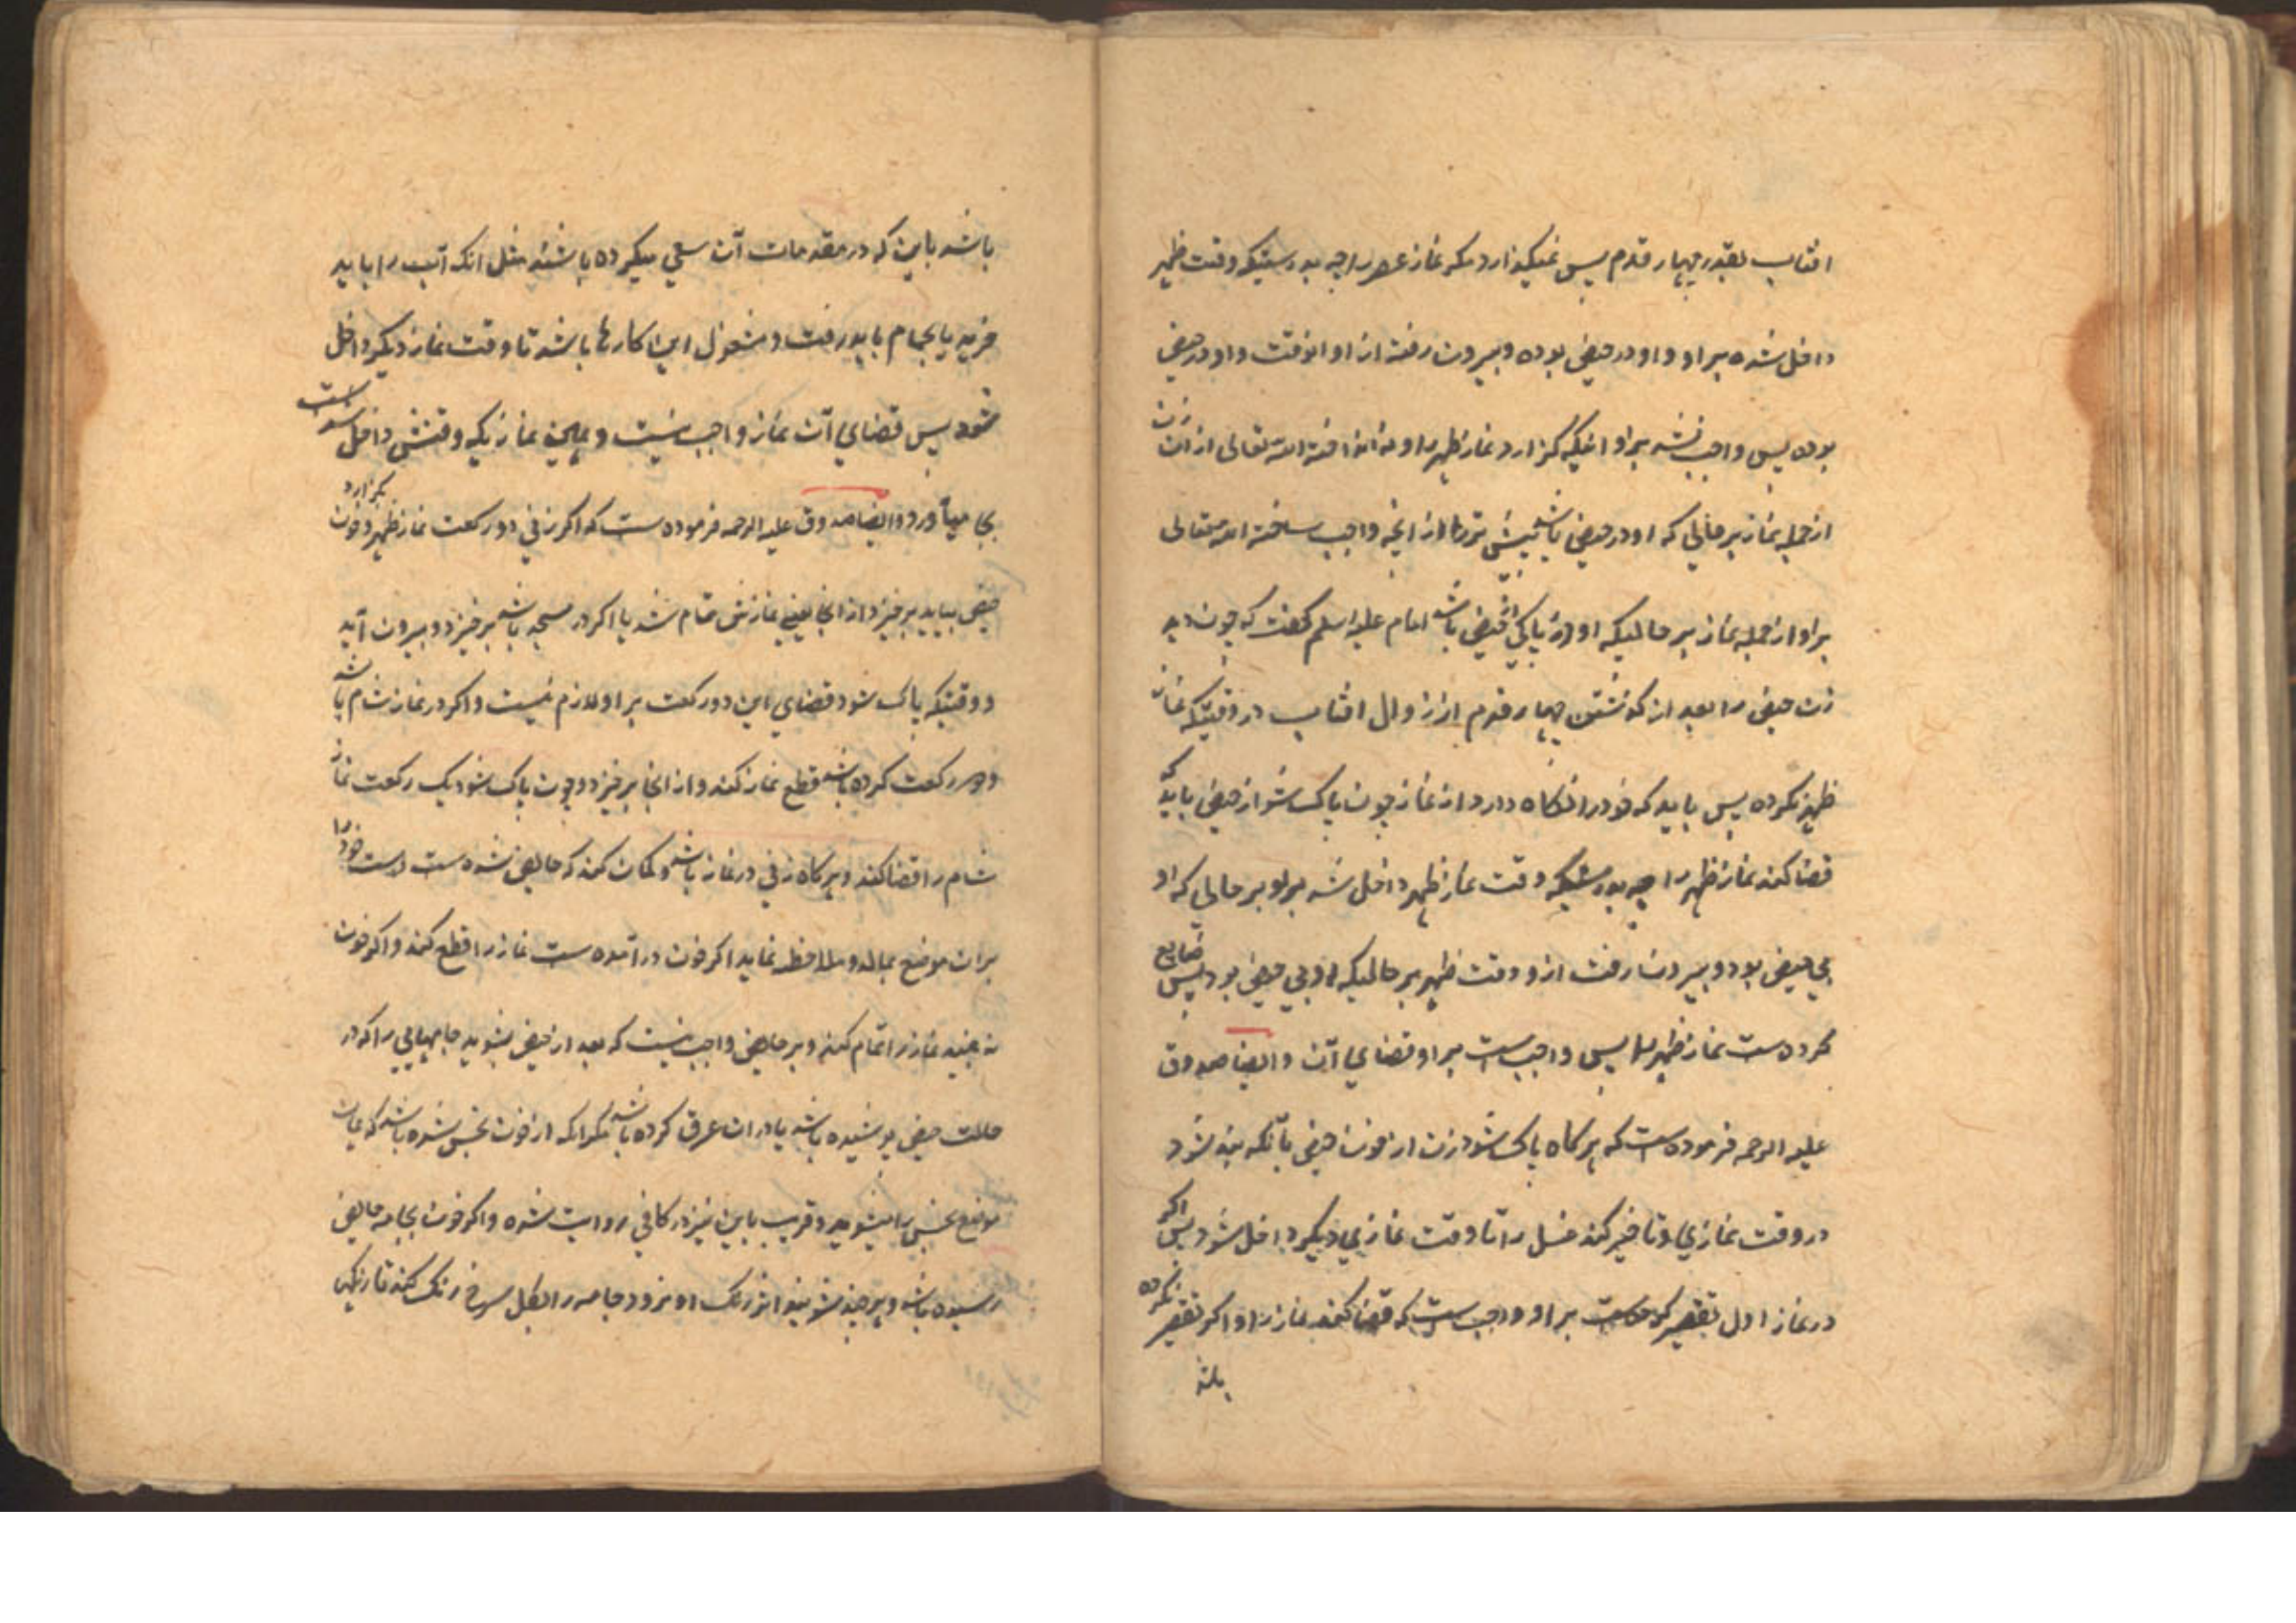 افتاب بقدر چهار قدم پس نمیگذارد مگر نماز عصر را چه بدرستیکه وقت ظهر
داخل شده بر او و او در حیض بوده و بیرون رفته از او انوقت و او در حیض
بوده پس واجب نشد بر او اینکه گزارد نماز ظهر را و نه انداخته الله تعالی از ان زن
از جمله نماز بر حالی که او در حیض باشد بیشتر از انچه واجب ساخته الله تعالی
بر او از جمله نماز بر حالیکه او در پاکی از حیض باشد امام علیه السلم گفت که چون دید
زن حیض را بعد از گذشتن چهار قدم از زوال افتاب در وقتیکه نماز
ظهر نکرده پس باید که خود را نگاه دارد از نماز چون پاک شد از حیض باید که
قضا کند نماز ظهر را چه بدرستیکه وقت نماز ظهر داخل شد بر او بر حالی که او
بی حیض بود و بیرون رفت از و وقت ظهر بر حالیکه او بی حیض بود پس ضایع
کرده ست نماز ظهر را پس واجب ست بر او قضای آن و ایضا صدوق
علیه الرحمه فرموده ست که هرگاه پاک شود زن از خون حیض بآنکه بند شود
در وقت نمازی و تاخیر کند غسل را تا وقت نمازی دیگر داخل شود پس اگر
در نماز اول تقصیر کرده ست بر او واجب ست که قضا کند نماز را و اگر تقصیر نکرده
باشد
باشد باین که در مقدمات آن سعی میکرده باشد مثل انکه آب را باید
خرید یا بحمام باید رفت و مشغول این کارها باشد تا وقت نماز دیگر داخل
شود پس قضای آن نماز واجب نیست و همین نمازیکه وقتش داخل شده است
بجا میآورد و ایضا صدوق علیه الرحمه فرموده ست که اگر زنی دو رکعت نماز ظهر بگزارد و خون
حیض بیاید برخیزد از انجا یعنی نمازش تمام شد یا اگر در مسجد باشد برخیزد و بیرون آید
و وقتیکه پاک شود قضای این دو رکعت بر او لازم نیست و اگر در نماز شام باشد
و دو رکعت کرده باشد قطع نماز کند و از انجا برخیزد و چون پاک شود یک رکعت نماز
شام را قضا کند و هرگاه زنی در نماز باشد و گمان کند که حایض شده ست دست خود را
بران موضع بمالد و ملاحظه نماید اگر خون در آمده ست نماز را قطع کند و اگر خون
نه بیند نماز را تمام کند و بر حایض واجب نیست که بعد از حیض بشوید جامهایی را که در
حالت حیض پوشیده باشد یا در ان عرق کرده باشد مگر انکه از خون نجس شده باشد که همان
موضع نجس را میشوید و قریب باین نیز در کافی روایت شده و اگر خون بجامه حایض
رسیده باشد و هر چند بشوید اثر رنگ او نرود جامه را بگل سرخ رنگ کند تا رنگین